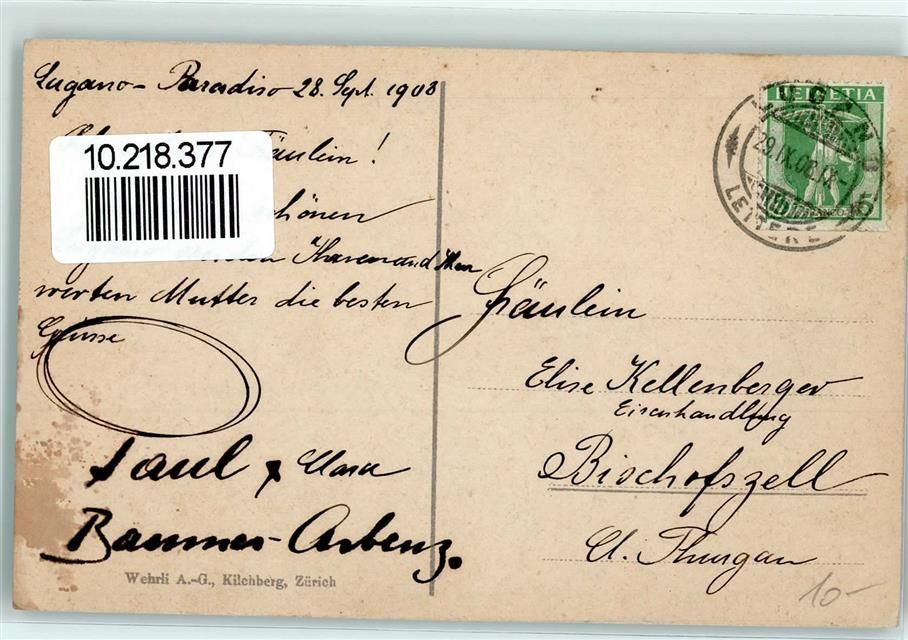 Lugano-Paradiso 28. Sept. 1908
Fräulein!
10.218.377
schönen
werten Mutter die besten
Grüsse
Paul & Clara
Baumer-Arbenz.
Wehrli A.-G., Kilchberg, Zürich
HELVETIA
LUGANO
29.IX.08.IX-
LETTERE
FRANCO
5
Fräulein
Elise Kellenberger
Eisenhandlung
Bischofszell
Ct. Thurgau
10-